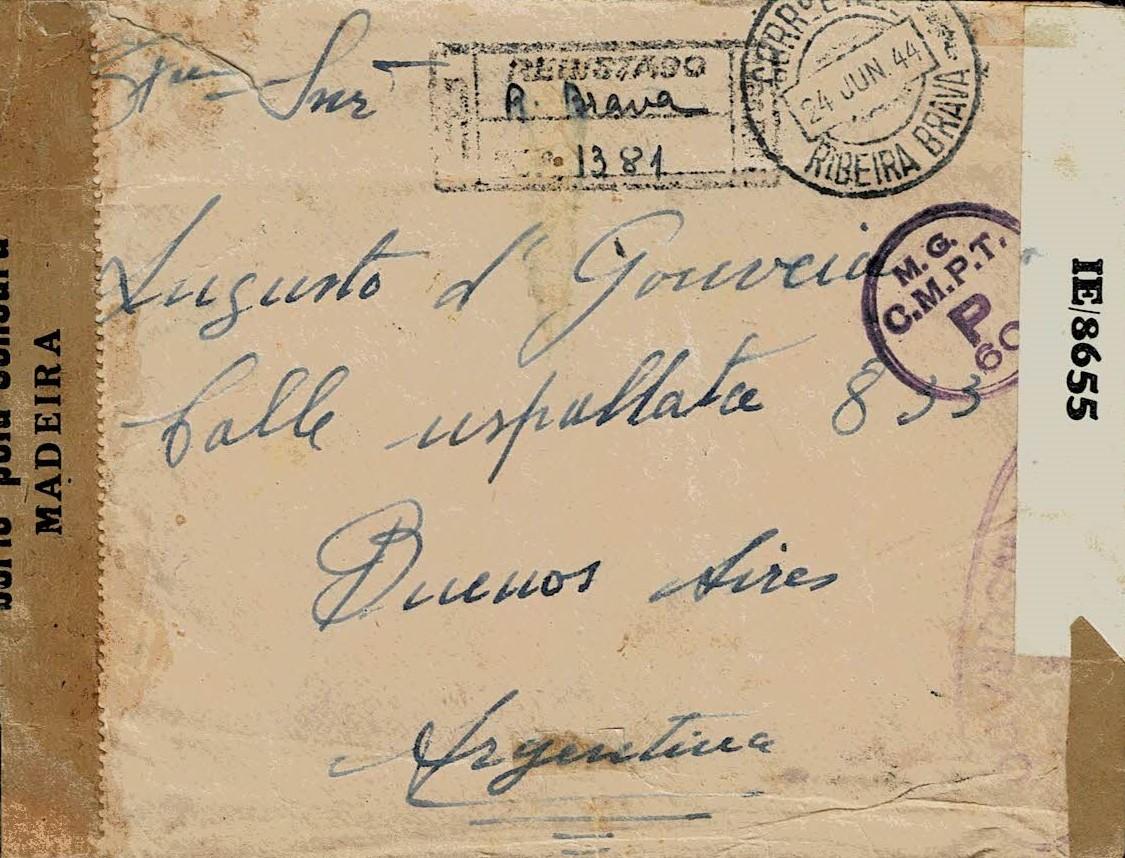 Exmo Snr
REGISTADO
R. Brava
1381
24 JUN. 44
RIBEIRA BRAVA
Augusto d' Gouveia
M. G.
C.M.P.T.
P.
60
Calle uspallata 833
Buenos Aires
Argentina
IE/8655
pela censura
MADEIRA